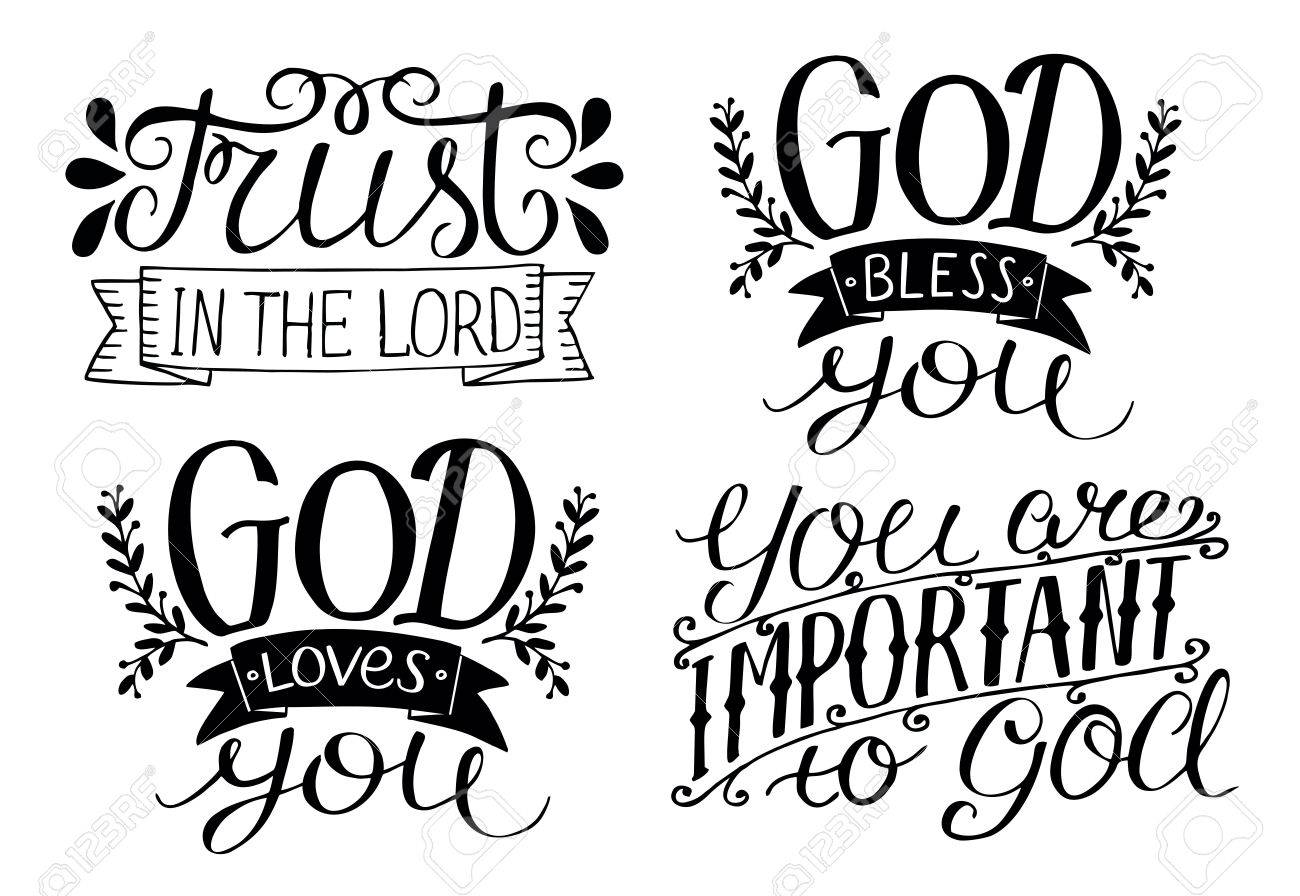 Trust
IN THE LORD
GOD
BLESS
you
GOD
LOVES
you
You are
IMPORTANT
to God
123RF